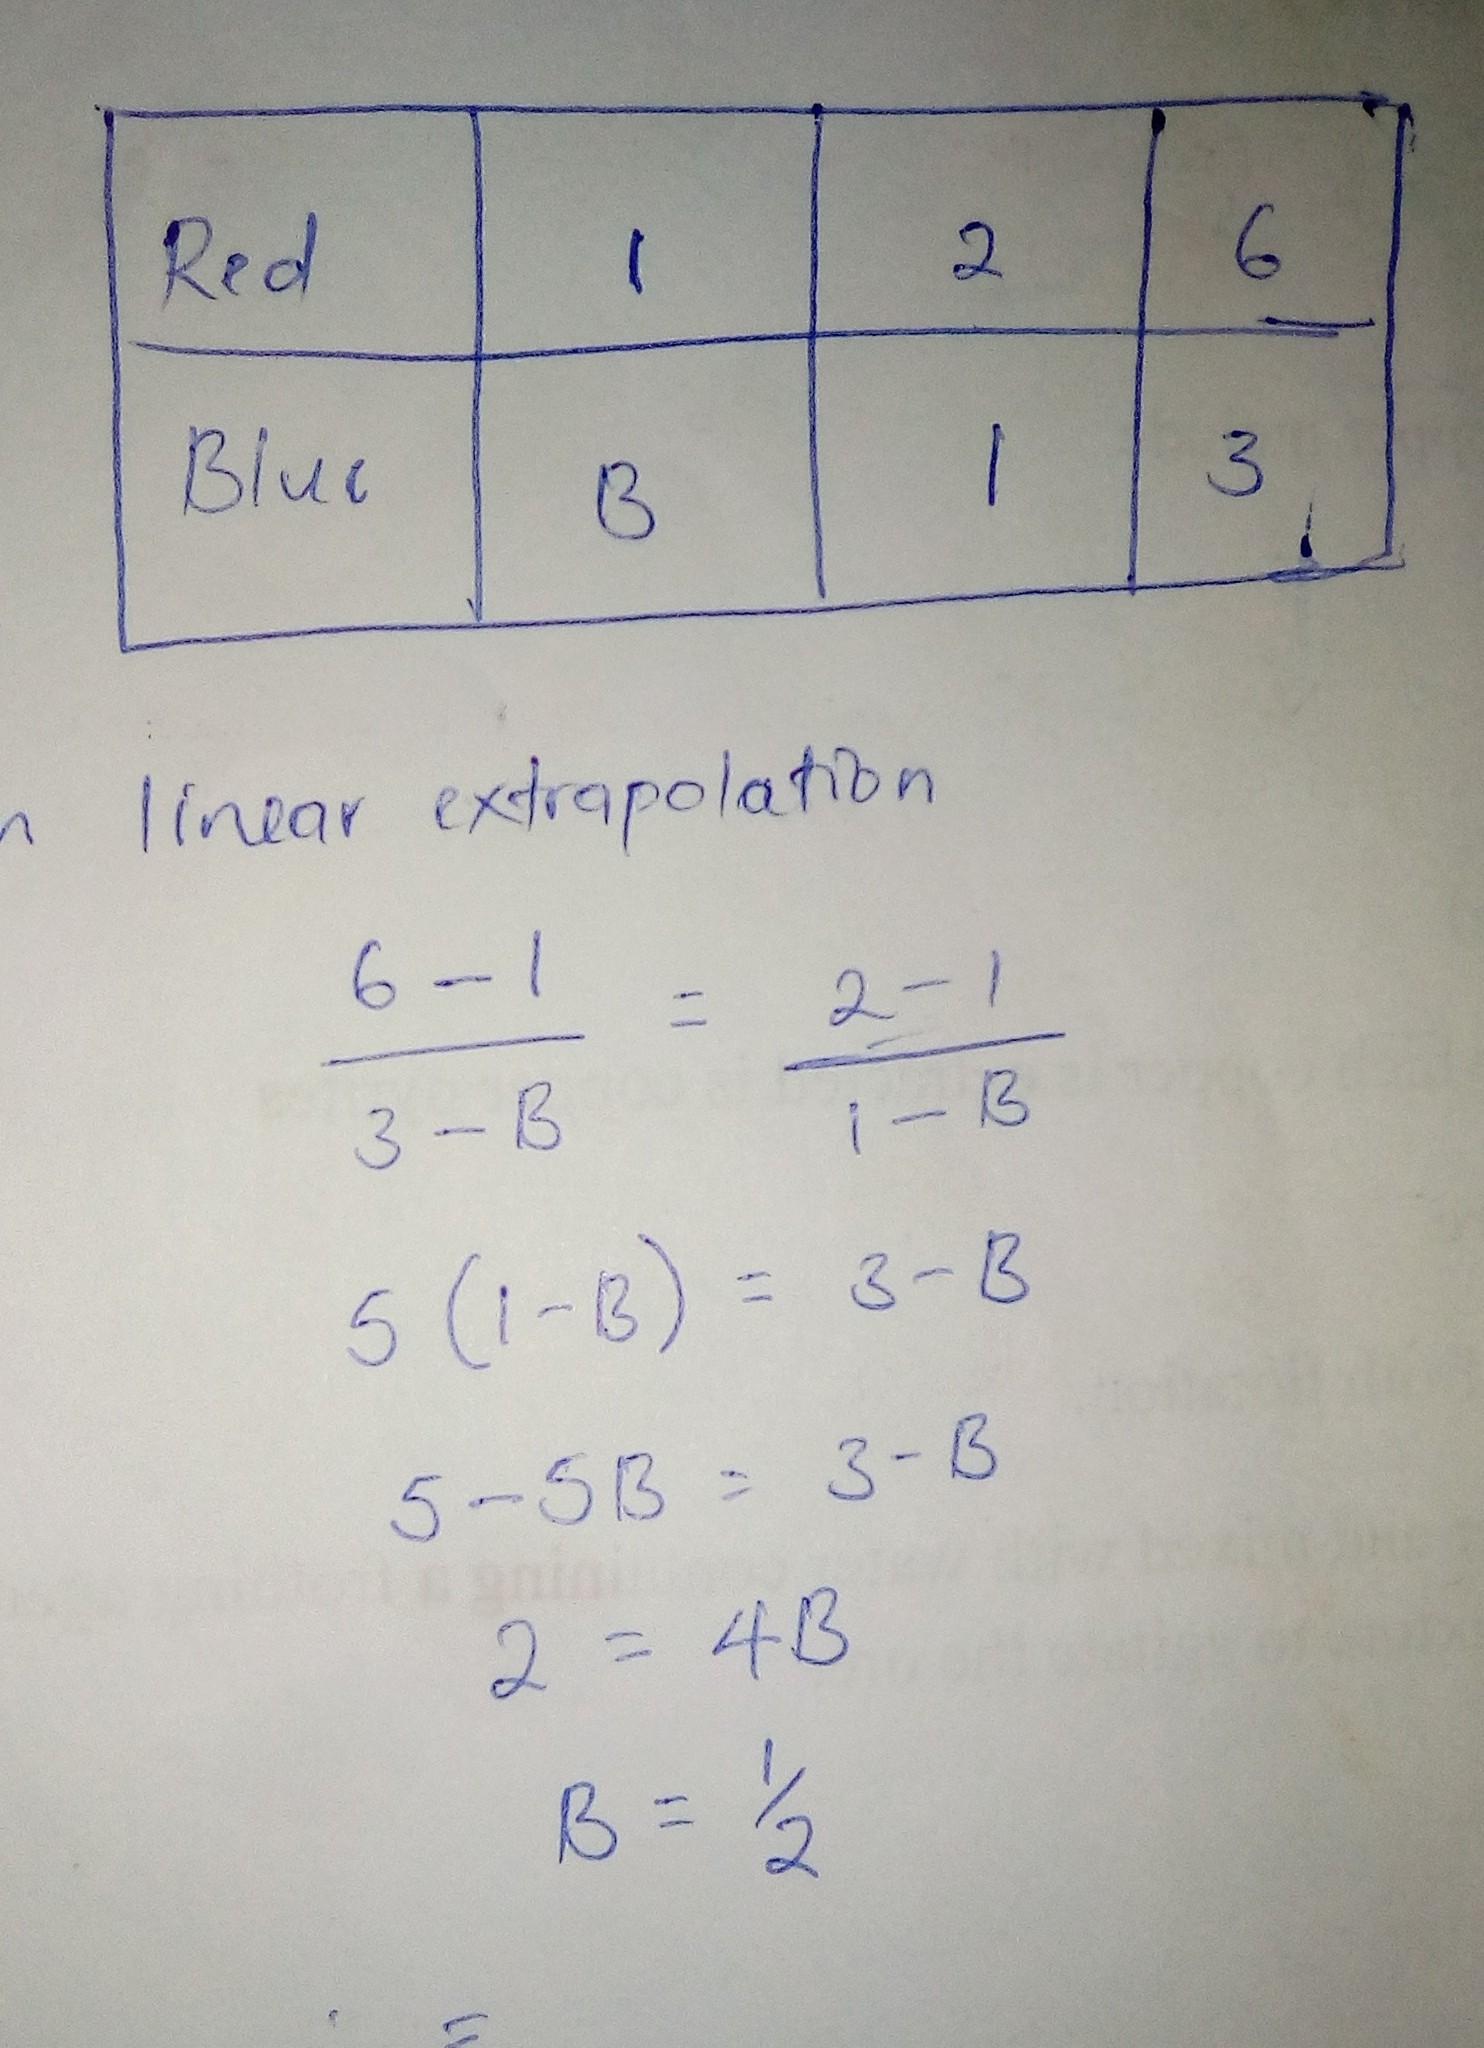 Red 1 2 6
Blue B 1 3
n linear extrapolation
6 - 1 = 2 - 1
3 - B 1 - B
5 (1 - B) = 3 - B
5 - 5B = 3 - B
2 = 4B
B = 1/2
=